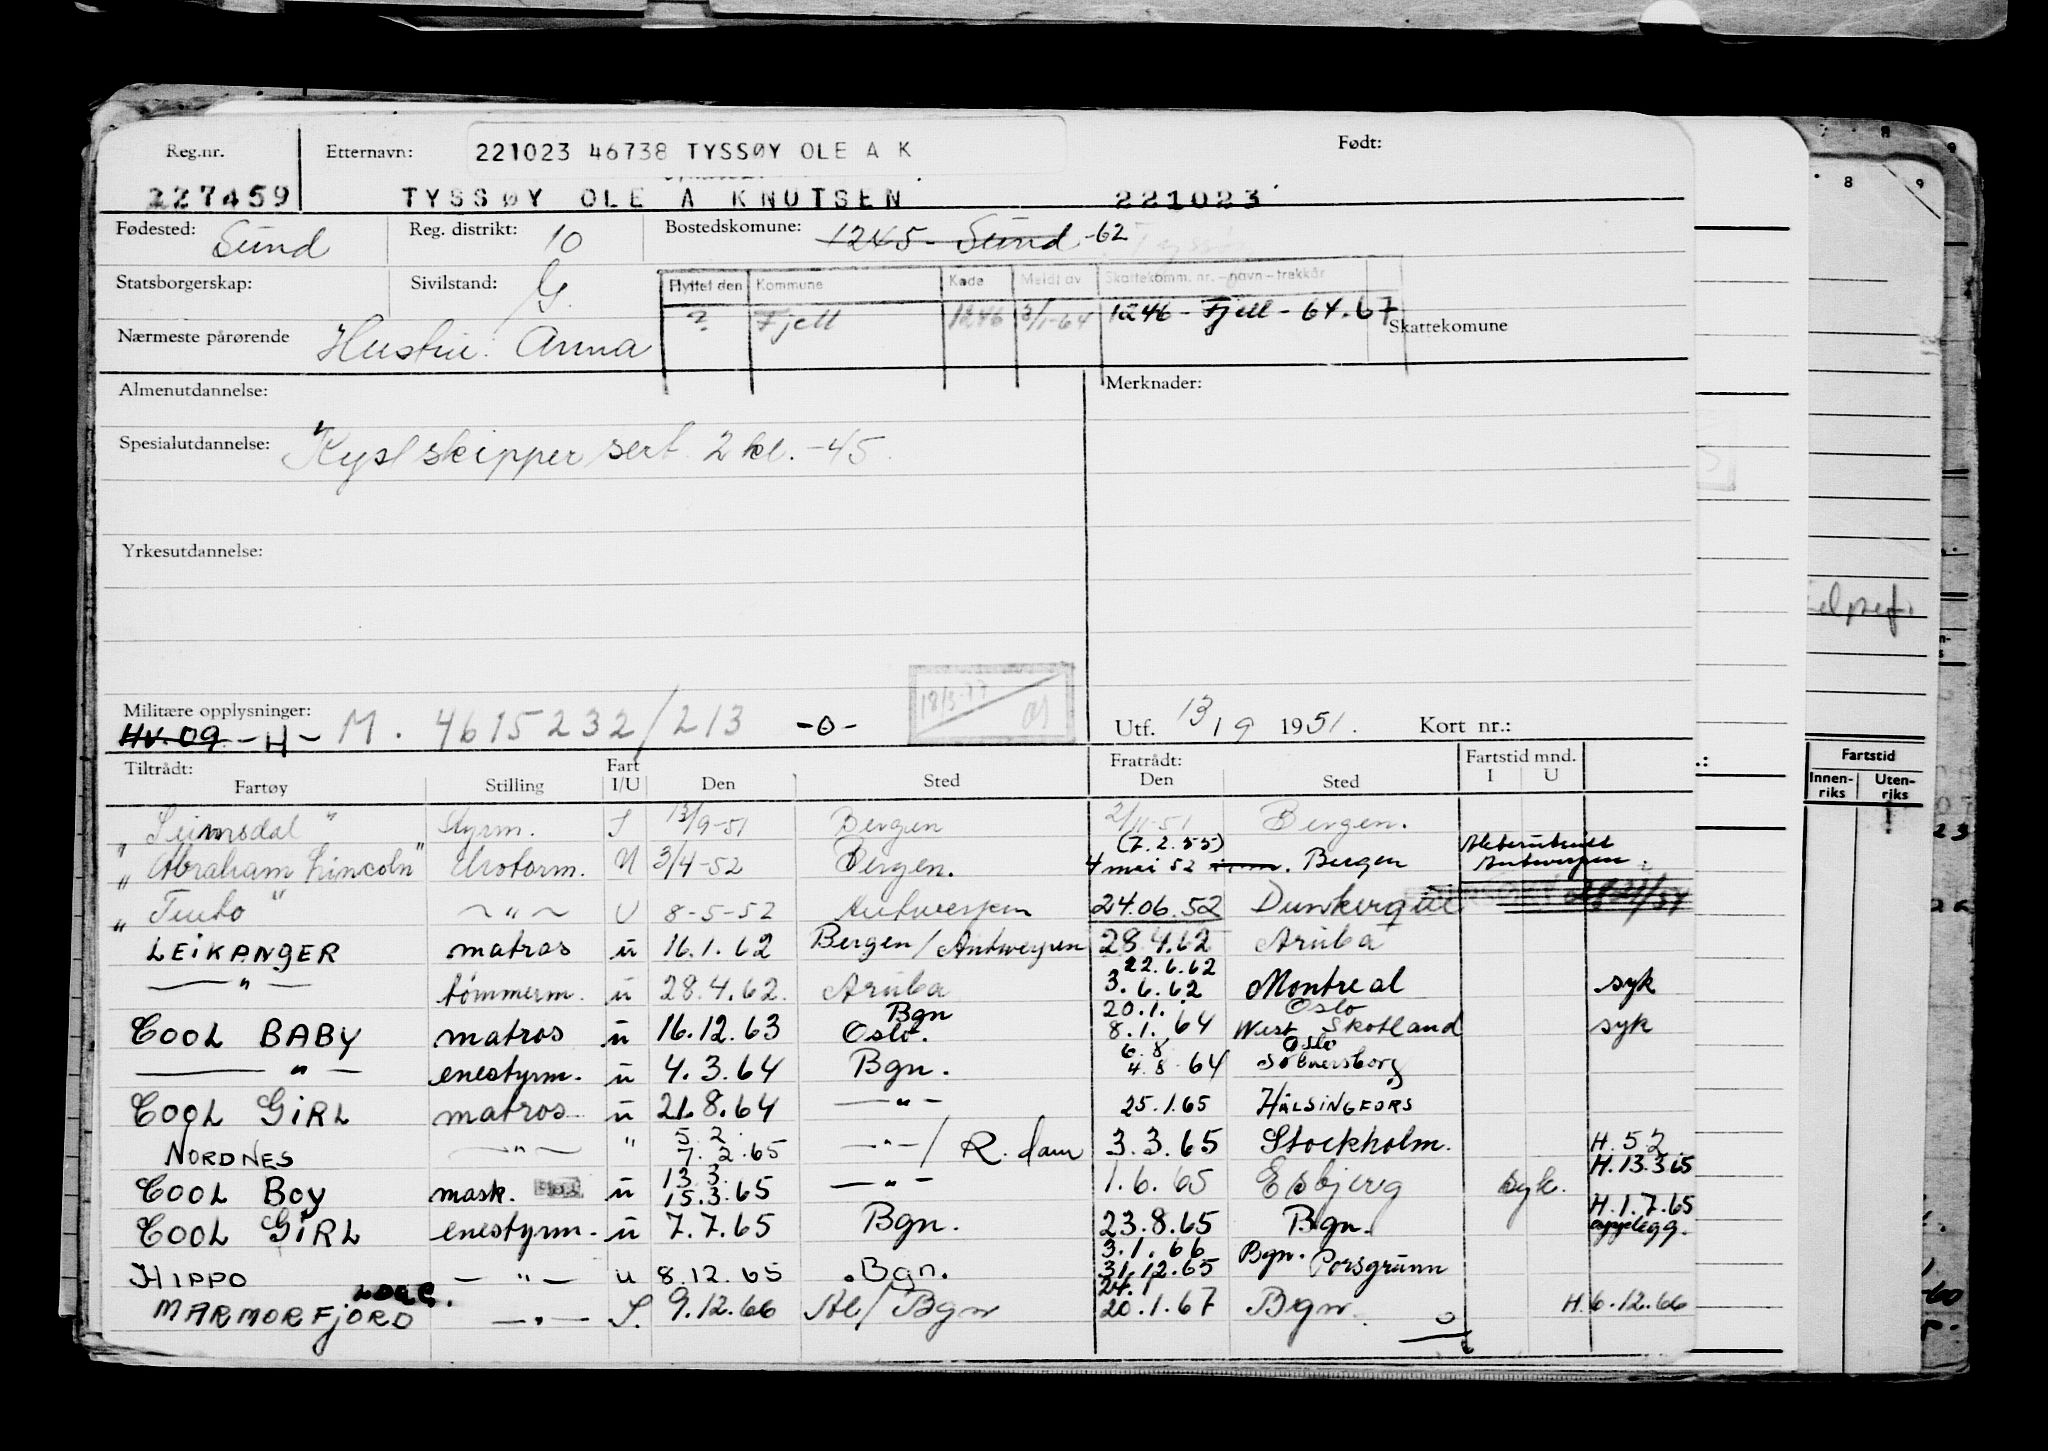 Reg.nr. Etternavn: 221023 46738 TYSSØY OLE A K Født:
227459 TYSSØY OLE A KNUTSEN 221023
Fødested: Sund Reg. distrikt: 10 Bostedskomune: 1245 - Sund -62
Statsborgerskap: Sivilstand: G. Flyttet den Kommune Kode Meldt av Skattekomm. nr. - navn - trekkår
? Fjell 1246 3/1-64 1246 - Fjell - 64.67
Nærmeste pårørende Hustru: Anna Skattekomune
Almenutdannelse: Merknader:
Spesialutdannelse: Kystskipper sert. 2 kl. -45
Yrkesutdannelse:
18/3-77
Militære opplysninger: M. 4615232/213 -0- Utf. 13/9 1951. Kort nr.:
HV.09 - H -
Tiltrådt: Fart Fratrådt: Fartstid mnd.
Fartøy Stilling I/U Den Sted Den Sted I U
"Leimsdal" styrm. I 13/9-51 Bergen 2/11-51 Bergen.
(7.2.55)
"Abraham Lincoln" U 3/4-52 Bergen. 4 mai 52 Bergen Antwerpen
" " ~ " ~ U 8-5-52 Antwerpen 24.06.52 Dunkerque
LEIKANGER matros u 16.1.62 Bergen/Antwerpen 28.4.62 Aruba
22.6.62
— " — tømmerm. u 28.4.62. Aruba 3.6.62 Montreal syk
Bgn 20.1. Oslo
COOL BABY matros u 16.12.63 Oslo. 8.1.64 West Skotland syk
6.8 Oslo
— " — enestyrm. u 4.3.64 Bgn. 4.8.64
COOL GIRL matros u 21.8.64 — " — 25.1.65 HÄLSINGFORS
5.2.
NORDNES — " — " 7.2.65 — " — / R.dam 3.3.65 Stockholm. H. 5.2
13.3. H. 13.3.65
COOL BOY mask. u 15.3.65 — " — 1.6.65 Esbjerg syk.
H. 1.7.65
COOL GIRL enestyrm. u 7.7.65 Bgn. 23.8.65 Bgn. opplegg.
3.1.66 Bgn.
HIPPO — " — u 8.12.65 Bgn. 31.12.65 Porsgrunn
24.1
MARMORFJORD — " — I. 9.12.66 Al/Bgn 20.1.67 Bgn. H. 6.12.66
8 9
Fartstid
Innen-riks Uten-riks